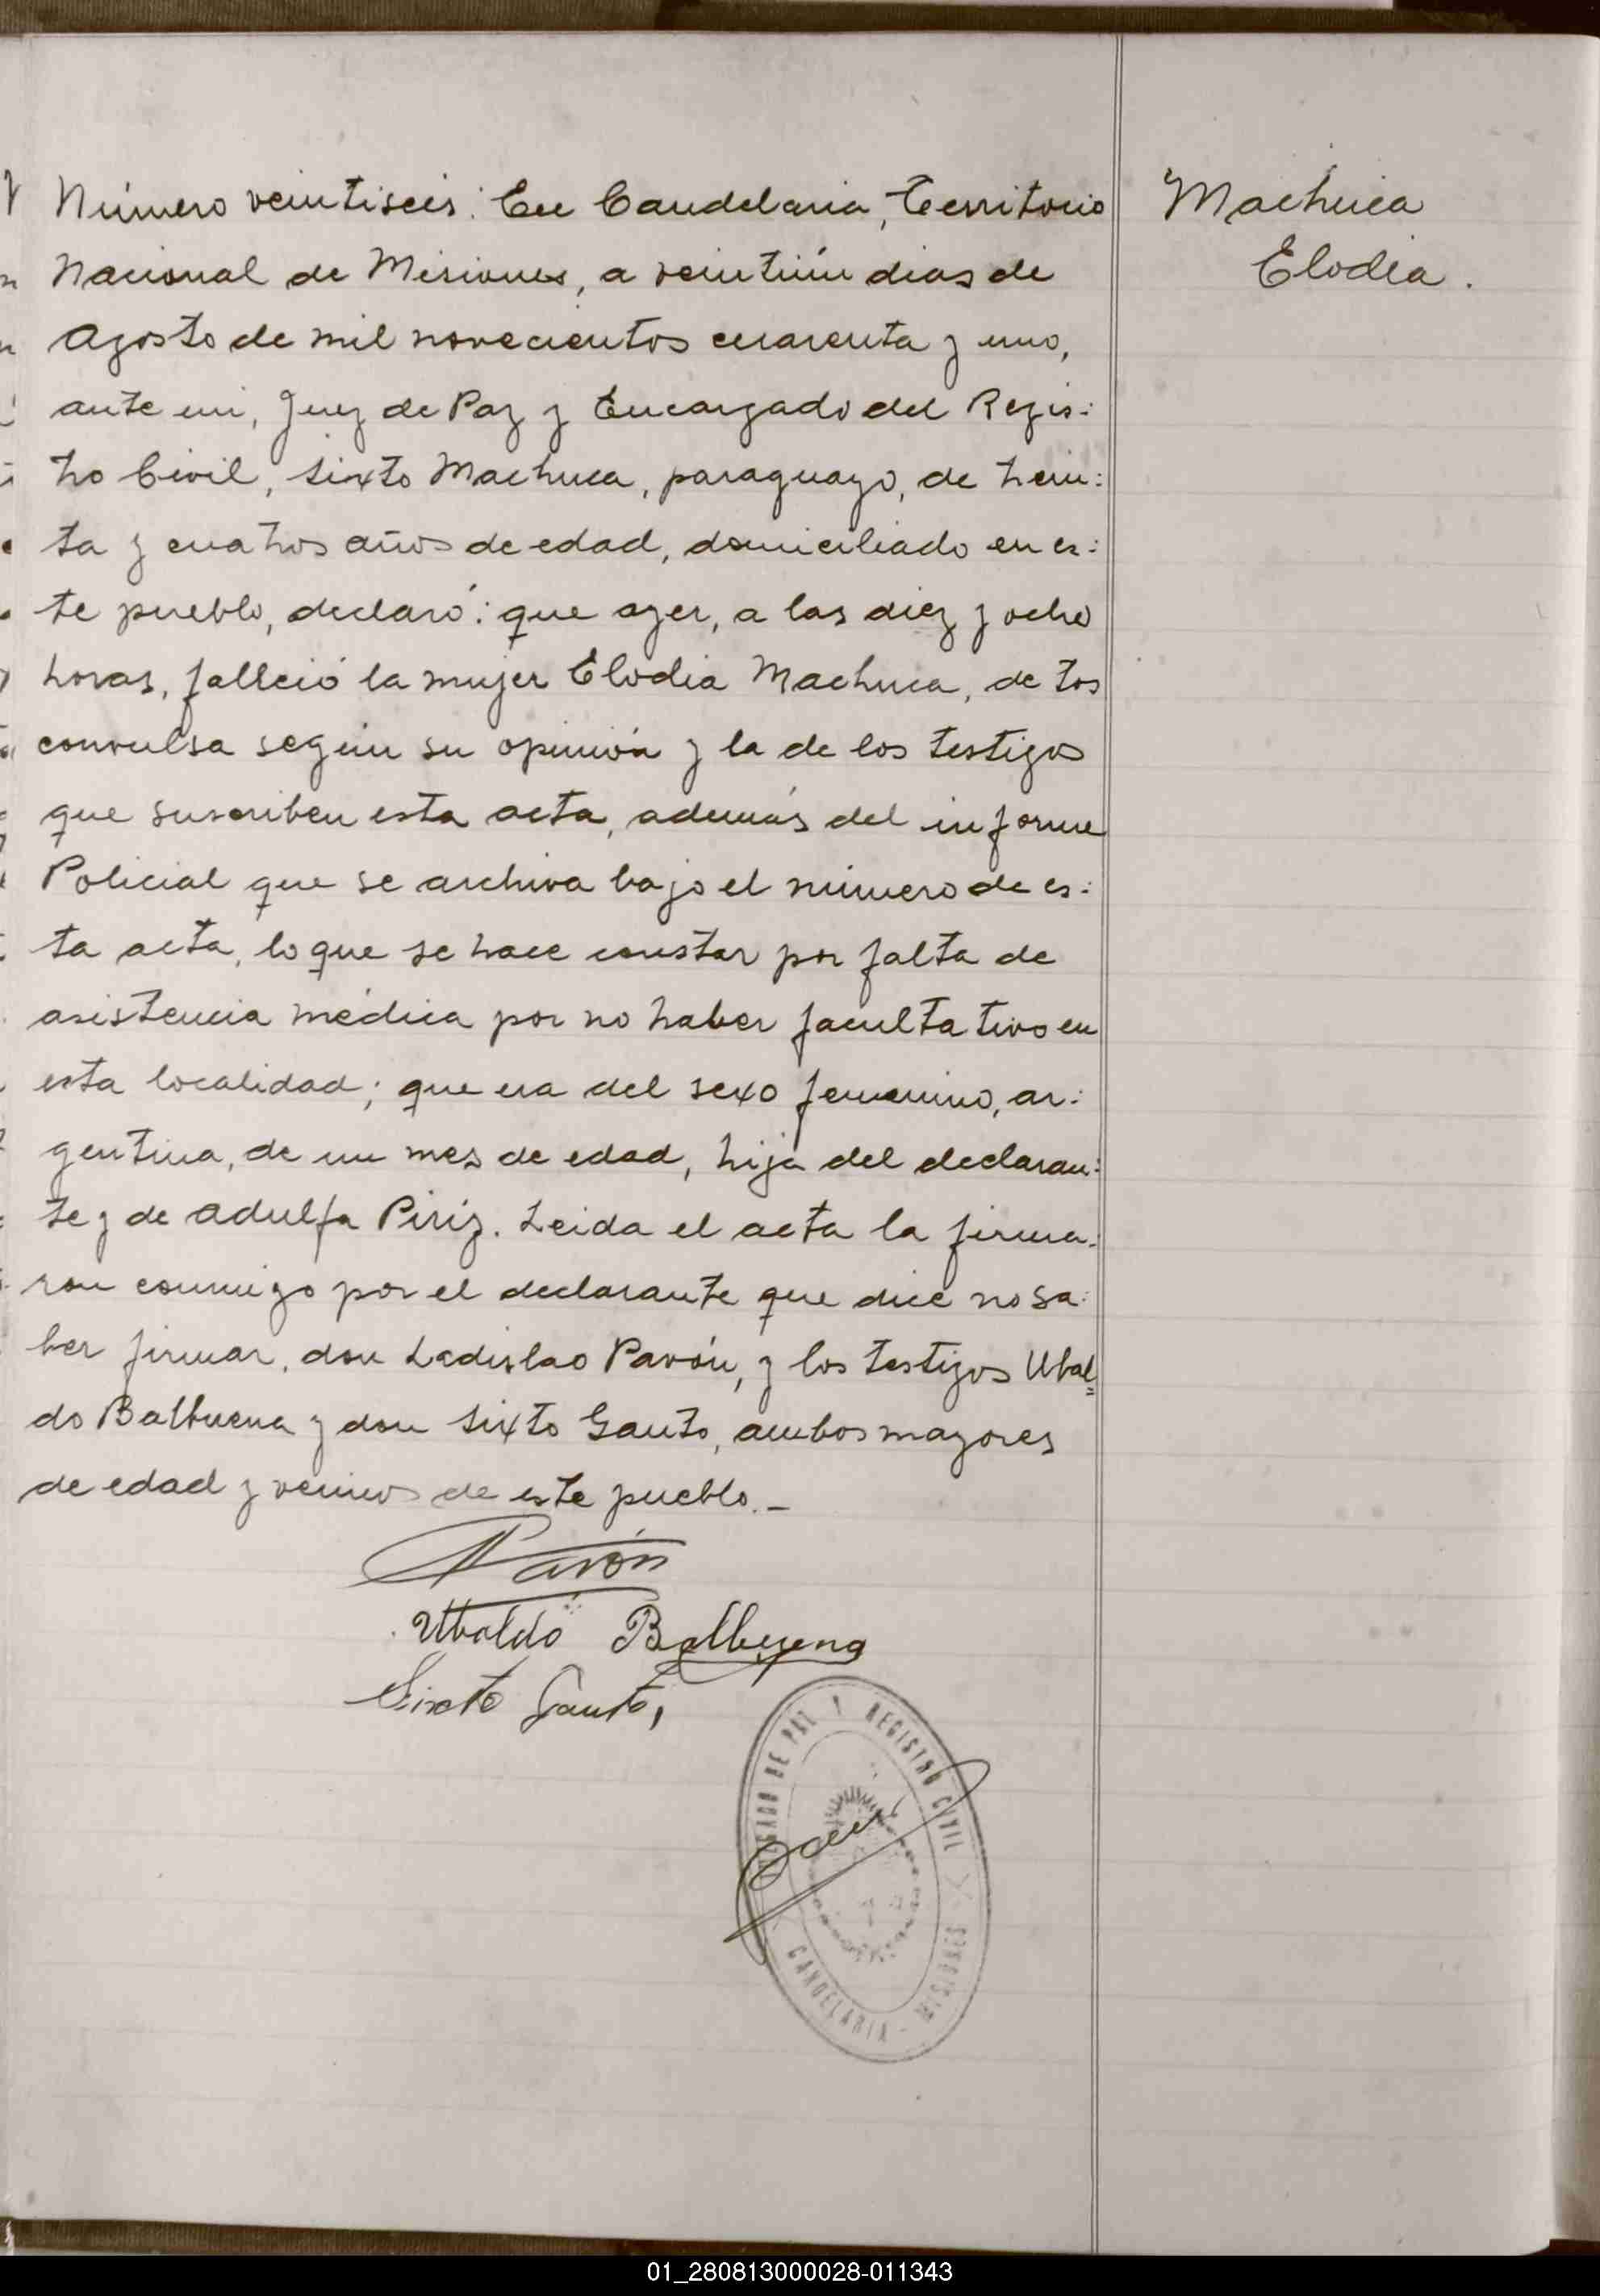 Machuca
Elodia.
Número veintiseis: En Candelaria, Territorio
Nacional de Misiones, a veintiún dias de
Agosto de mil novecientos cuarenta y uno,
ante mi, Juez de Paz y Encargado del Regis:
tro Civil, Sixto Machuca, paraguayo, de trein:
ta y cuatros años de edad, domiciliado en es:
te pueblo, declaró: que ayer, a las diez y ocho
horas, falleció la mujer Elodia Machuca, de tos
convulsa según su opinión y la de los testigos
que suscriben esta acta, además del informe
Policial que se archiva bajo el número de es:
ta acta, lo que se hace constar por falta de
asistencia médica por no haber facultativo en
esta localidad; que era del sexo femenino, ar:
gentina, de un mes de edad, hija del declaran:
te y de Adulfa Piriz. Leida el acta la firma:
ron conmigo por el declarante que dice no sa:
ber firmar, don Ladislao Pavón, y los testigos Ubal=
do Balbuena y don Sixto Gauto, ambos mayores
de edad y vecinos de este pueblo.-
Pavón
Ubaldo Balbuena
Sixto Gauto,
JUZGADO DE PAZ Y REGISTRO CIVIL
CANDELARIA - MISIONES
01_280813000028-011343